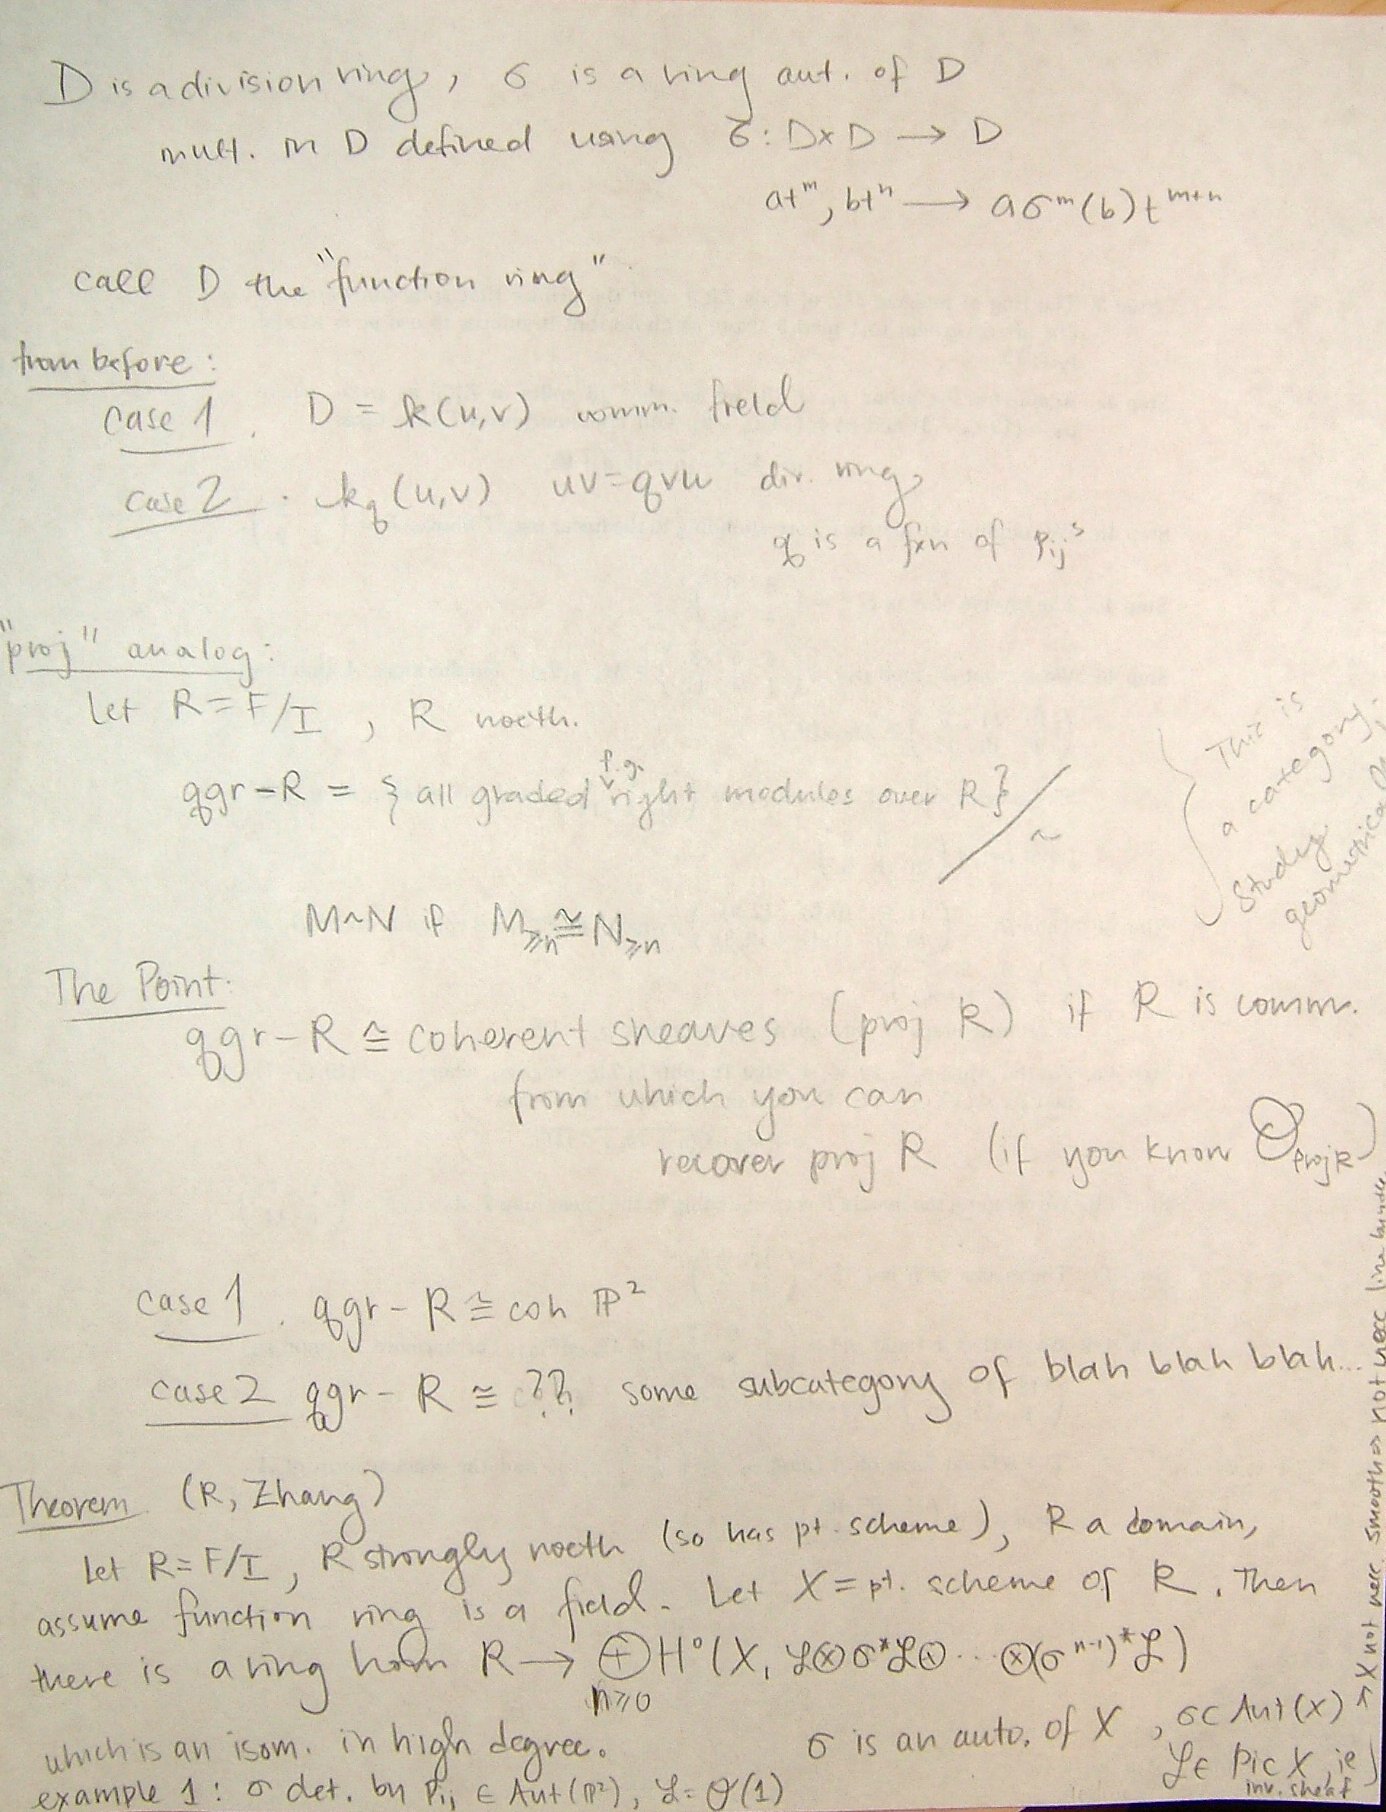 D is a division ring, σ is a ring aut. of D
mult. in D defined using σ: D×D → D
at^m, bt^n → aσ^m(b)t^{m+n}
call D the "function ring"
from before:
case 1. D = k(u,v) comm. field
case 2. k_q(u,v) uv=qvu div. ring
q is a fxn of p_ij's
"proj" analog:
Let R=F/I, R noeth.
qgr-R = {all graded f.g. right modules over R}/~
This is
a category.
Study
M~N if M_≥n ≅ N_≥n
The Point:
qgr-R ≅ coherent sheaves (proj R) if R is comm.
from which you can
recover proj R (if you know O_proj R)
case 1. qgr-R ≅ coh ℙ²
case 2 qgr-R ≅ ?? some subcategory of blah blah blah...
Theorem (R, Zhang)
Let R=F/I, R strongly noeth (so has pt. scheme), R a domain,
assume function ring is a field. Let X=pt. scheme of R. Then
there is a ring hom R → ⊕_{n≥0} H⁰(X, ℒ⊗σ*ℒ⊗...⊗(σ^{n-1})*ℒ)
which is an isom. in high degree.
σ is an auto. of X, σ∈Aut(X)
ℒ∈ Pic X, ie
inv. sheaf
example 1: σ det. by p_ij ∈ Aut(ℙ²), ℒ=O(1)
X not necc. smooth ⇒ not necc line bundle